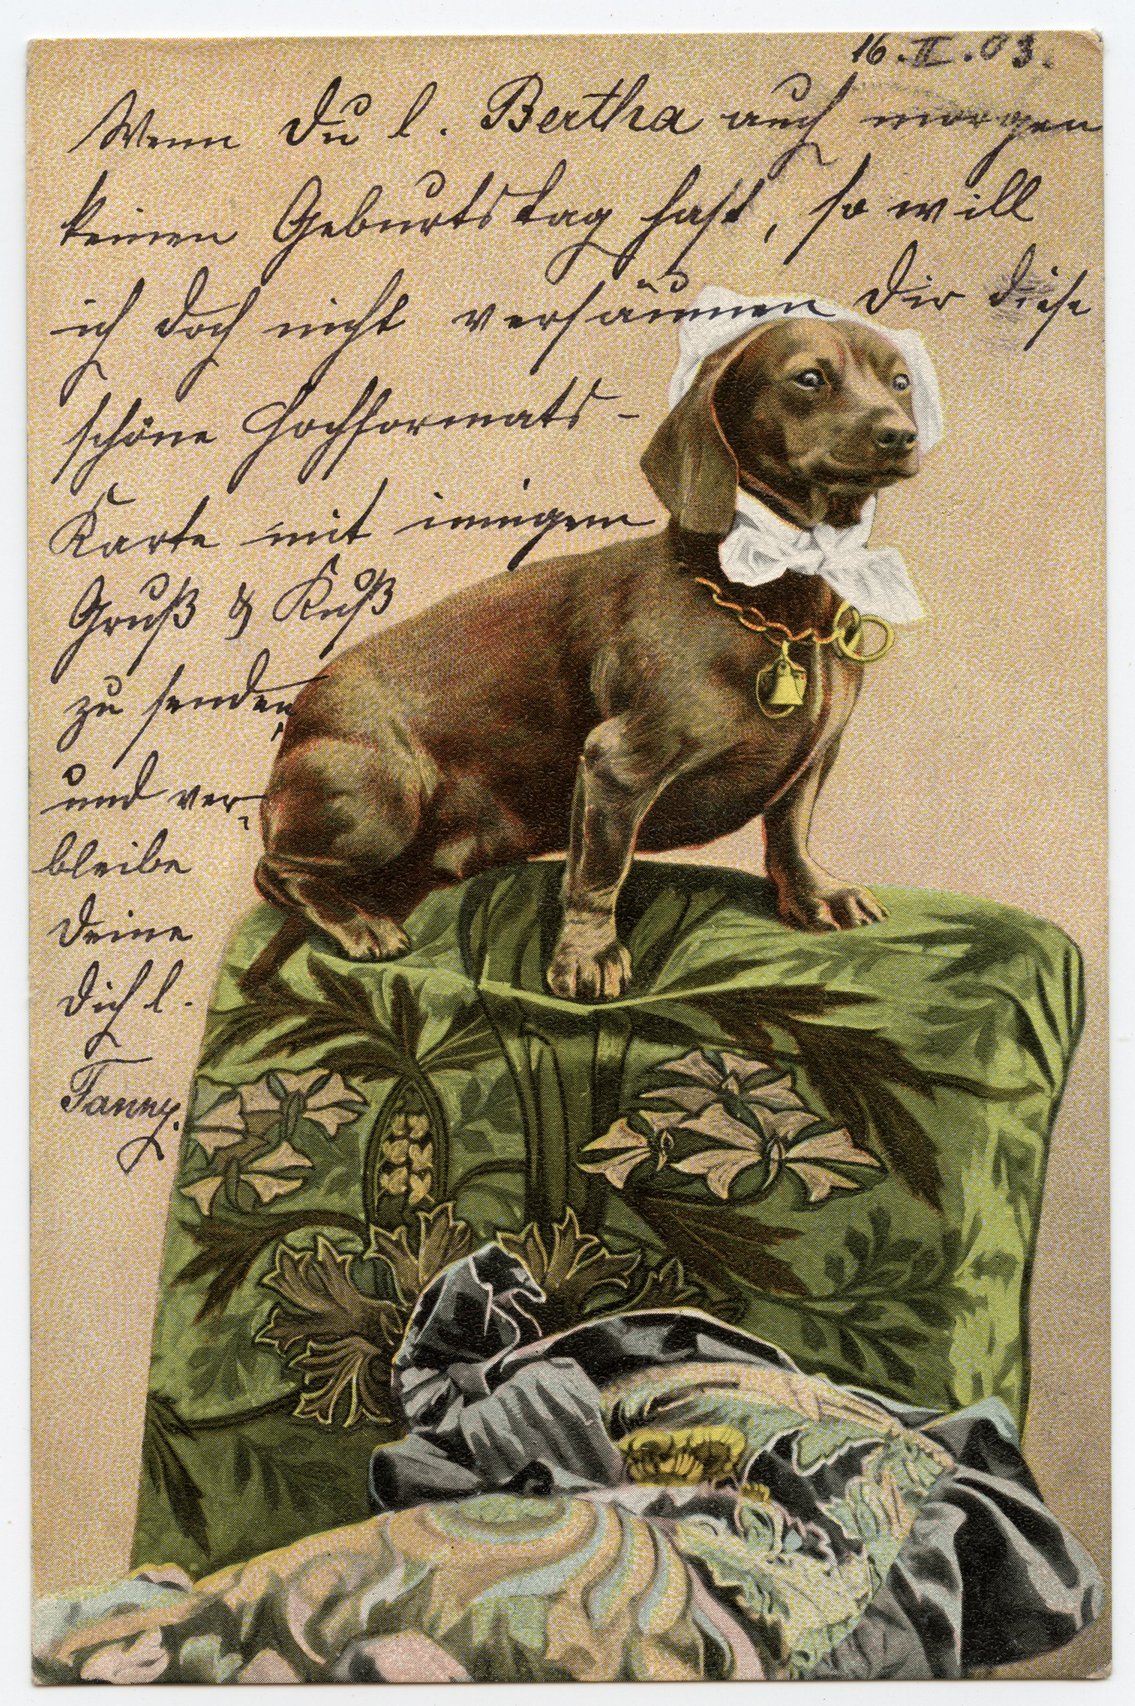 16.II.03.
Wenn Du l. Bertha auch morgen
keinen Geburtstag hast, so will
ich doch nicht versäumen Dir diese
schöne Hochformats-
Karte mit innigem
Gruß & Kuß
zu senden
und ver-
bleibe
Deine
Dich l.
Fanny.